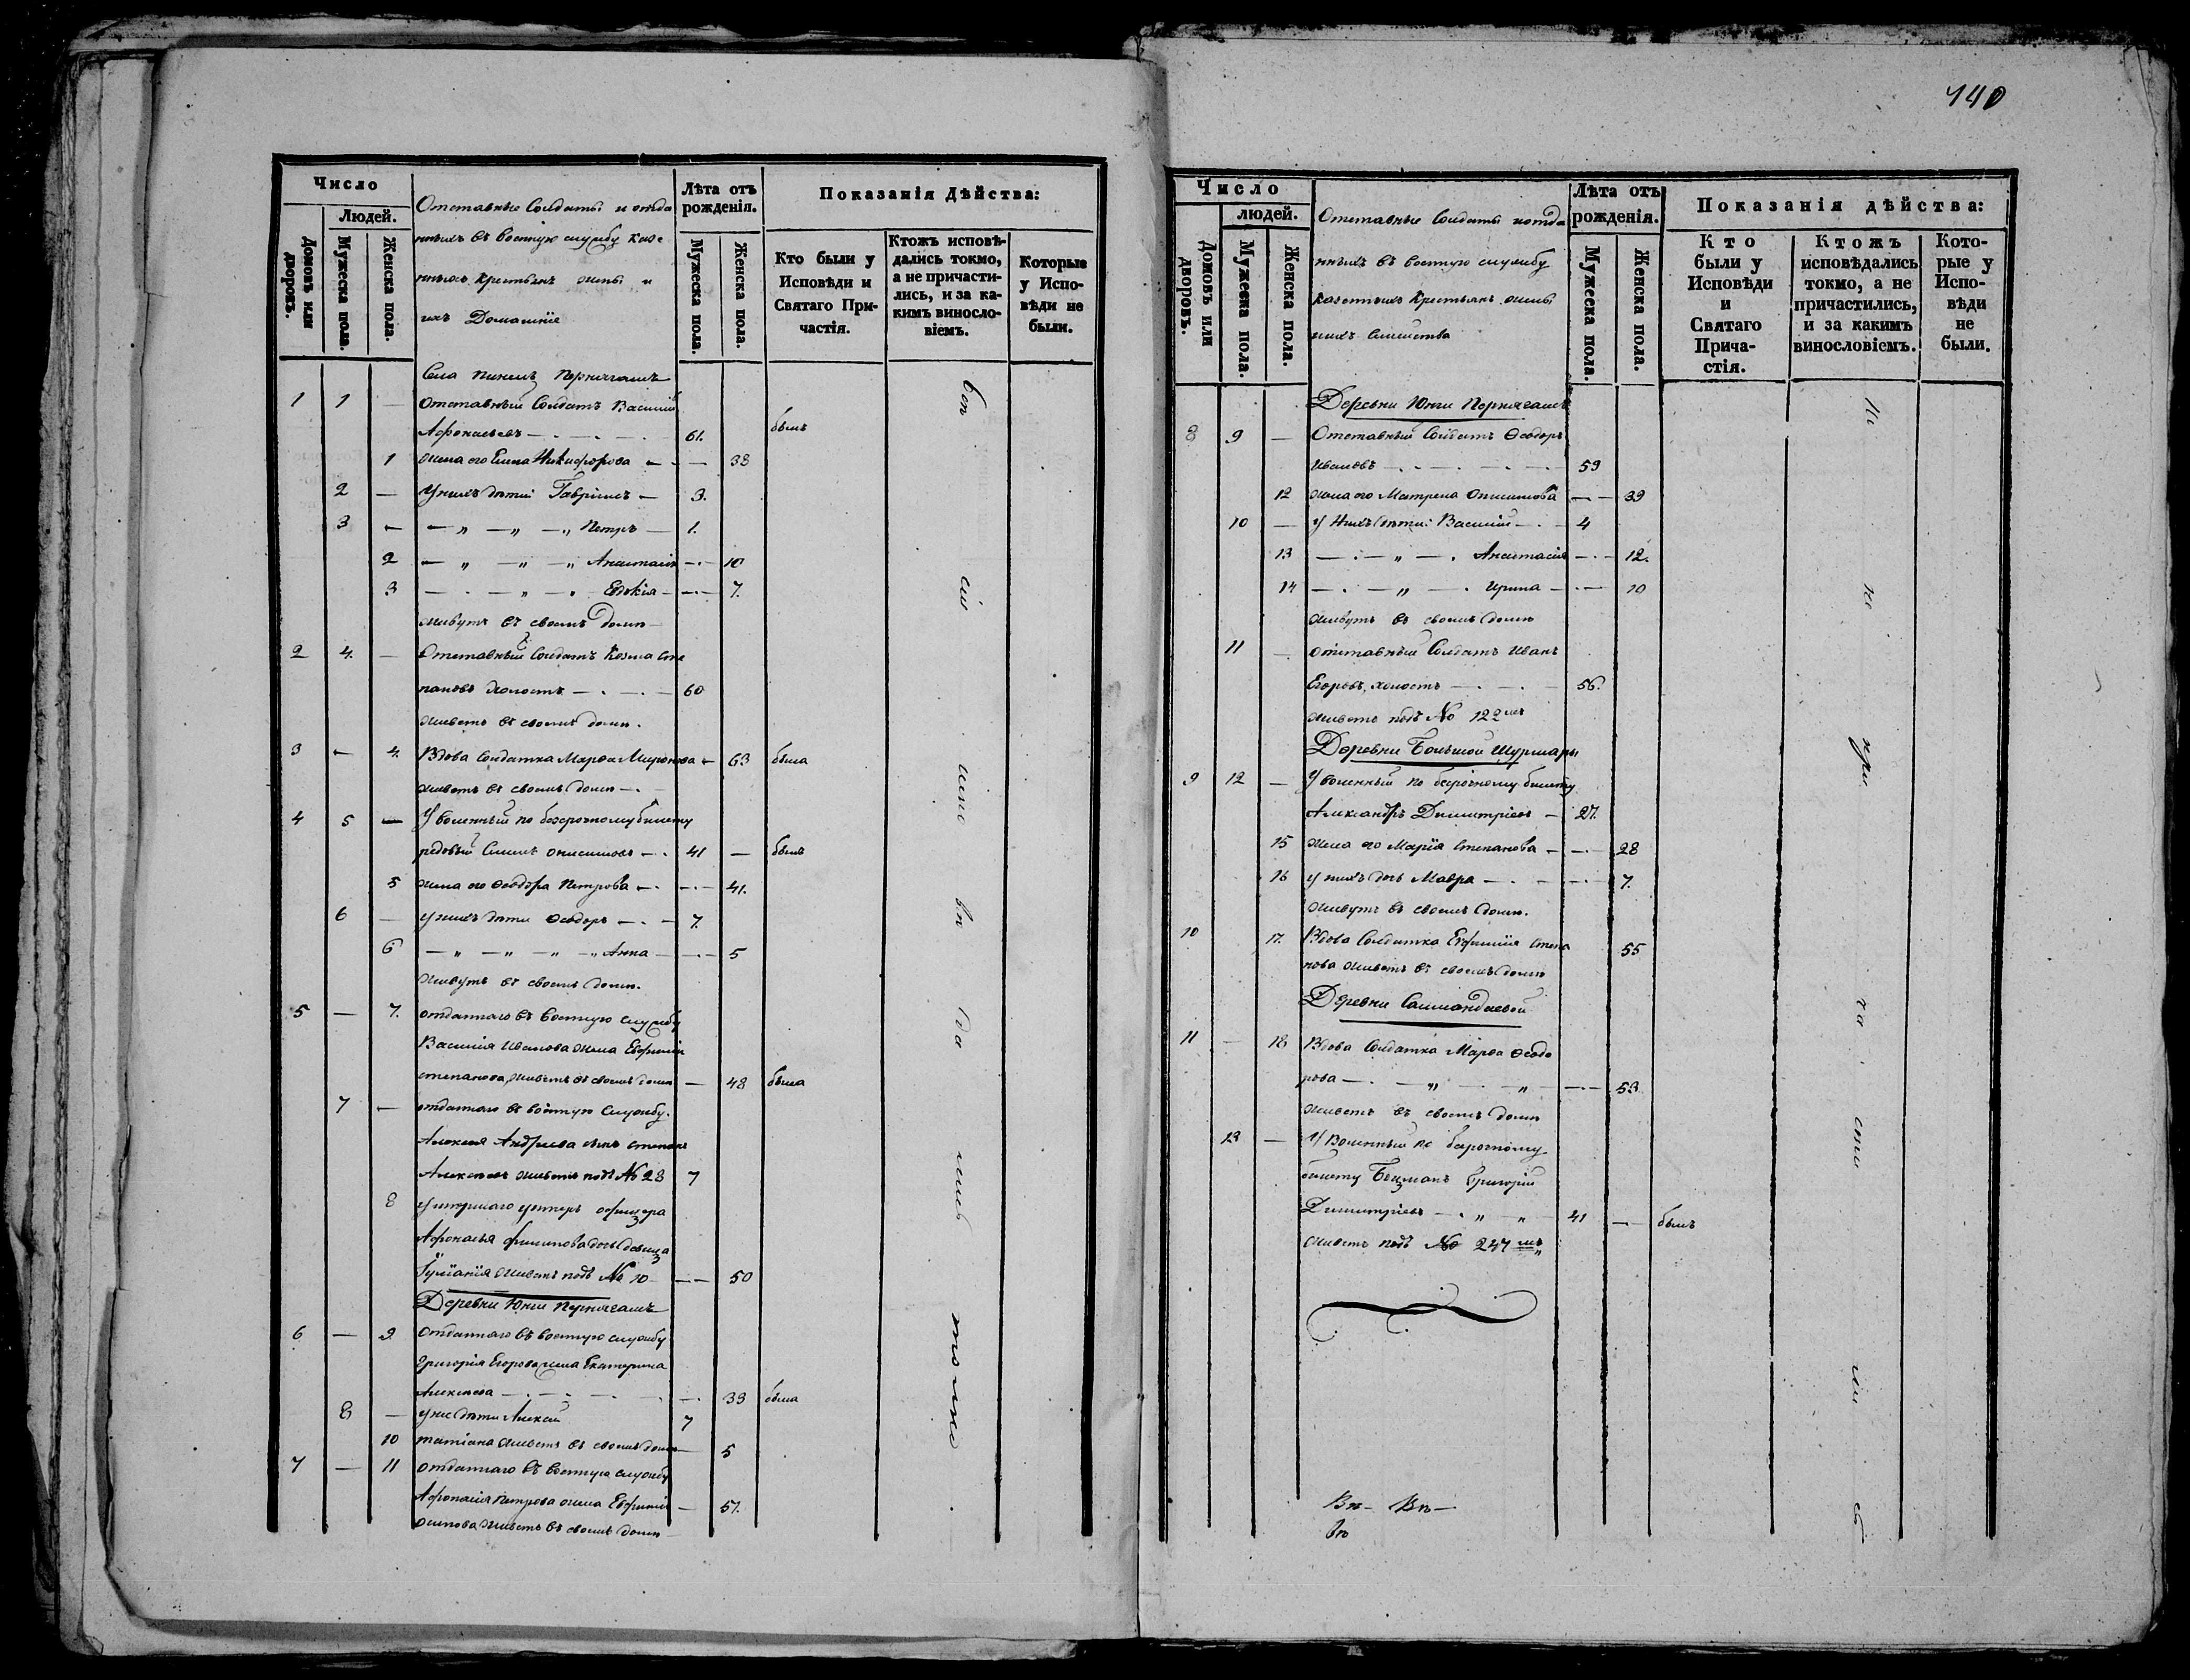 140
Число
Людей.
Домовъ или дворовъ.
Мужеска пола.
Женска пола.
Отставные Солдаты и отда
нныхъ въ военную службу казе
нныхъ крестьянъ жены и
ихъ Домашніе
Лѣта отъ рожденія.
Мужеска пола.
Женска пола.
Показанія Дѣйства:
Кто были у Исповѣди и Святаго Причастія.
Ктожъ исповѣдались токмо, а не причастились, и за какимъ винословіемъ.
Которые у Исповѣди не были.
Села
1 1 — Отставный Солдатъ Василій
Афонасьевъ — 61. былъ
1 жена его Елена Никифорова — 38
2 — У нихъ дѣти Гавріилъ — 3.
3 — — „ — „ — „ Петръ — 1.
2 — „ — „ — „ Анастасія — 10
3 — . — „ — „ Евдокія — 7.
живутъ въ своемъ домѣ
2 4. — Отставный Солдатъ Козма Сте
пановъ холостъ — . — . — 60
живетъ въ своемъ домѣ.
3 — 4. Вдова Солдатка Марѳа Миронова — 63 была
живетъ въ своемъ домѣ —.
4 5 — Уволенный по безсрочному билету
рядовый Онисимовъ — . 41 — былъ
5 жена его Ѳеодора Петрова — . — 41.
6 — у нихъ дѣти Ѳеодоръ — . — 7.
6 — „ — „ — „ — „ Анна — . — 5
живутъ въ своемъ домѣ.
5 — 7. отданнаго въ военную службу
Василія Иванова жена Евфимія
степанова, живетъ въ своемъ домѣ — 48 была
7 — отданнаго въ военную службу.
Алексея Андреева сынъ степанъ
Алексѣевъ живетъ подъ № 28 7
8 умершаго унтеръ офицера
Афонасья Филипова дочь девица
Іуліанія живетъ подъ № 10 — 50
Деревни Юнги
6 — 9 Отданнаго въ военную службу
Григорія Егорова жена Екатерина
Алексеева — . — . — 39 была
8 — у нее дѣти Алексей 7
10 татіана живетъ въ своемъ домѣ — 5
7 — 11 отданнаго въ военную службу
Афонасія Петрова жена Евфимія — 51.
Осипова живетъ въ своемъ домѣ
всѣ сіи испо вѣ да лись то лько
Число
людей.
Домовъ или дворовъ.
Мужеска пола.
Женска пола.
Отставные Солдаты и отда
нныхъ въ военную службу
казенныхъ крестьянъ жены
и ихъ семейства
Лѣта отъ рожденія.
Мужеска пола.
Женска пола.
Показанія дѣйства:
Кто были у Исповѣди и Святаго Причастія.
Ктожъ исповѣдались токмо, а не причастились, и за какимъ винословіемъ.
Которые у Исповѣди не были.
Деревни Юнги
8 9 — Отставный Солдатъ Ѳеодоръ
Ивановъ — . — . — 59
12 жена его Матрена Онисимова — 39
10 — у нихъ дѣти: Василій — . — 4
13 — . — „ — . Анастасія — . — 12.
14 — . — „ — . Ирина — . — 10
живутъ въ своемъ домѣ
11 — отставный Солдатъ Иванъ
Егоровъ, холостъ — . — . — 56.
живетъ подъ № 122мъ
Деревни Большой
9 12 — Уволенный по безсрочному билету
Александръ Димитріевъ — 27.
15 жена его Марія Степанова — . — 28
16 у нихъ дочь Мавра — . — . — 7.
живутъ въ своемъ домѣ.
10 17. Вдова Солдатка Евфимія Степа 55
нова живетъ въ своемъ домѣ
Деревни
11 — 18 Вдова Солдатка Марѳа Ѳеодо
рова — . — „ — . „ — . — 53
живетъ въ своемъ домѣ
13 — Уволенный по безсрочному
билету Григорій
Димитріевъ — . „ „ — 41 — былъ
живетъ подъ № 247мъ
не при ча сти ли сь
Вѣ — Вѣ —
вѣ